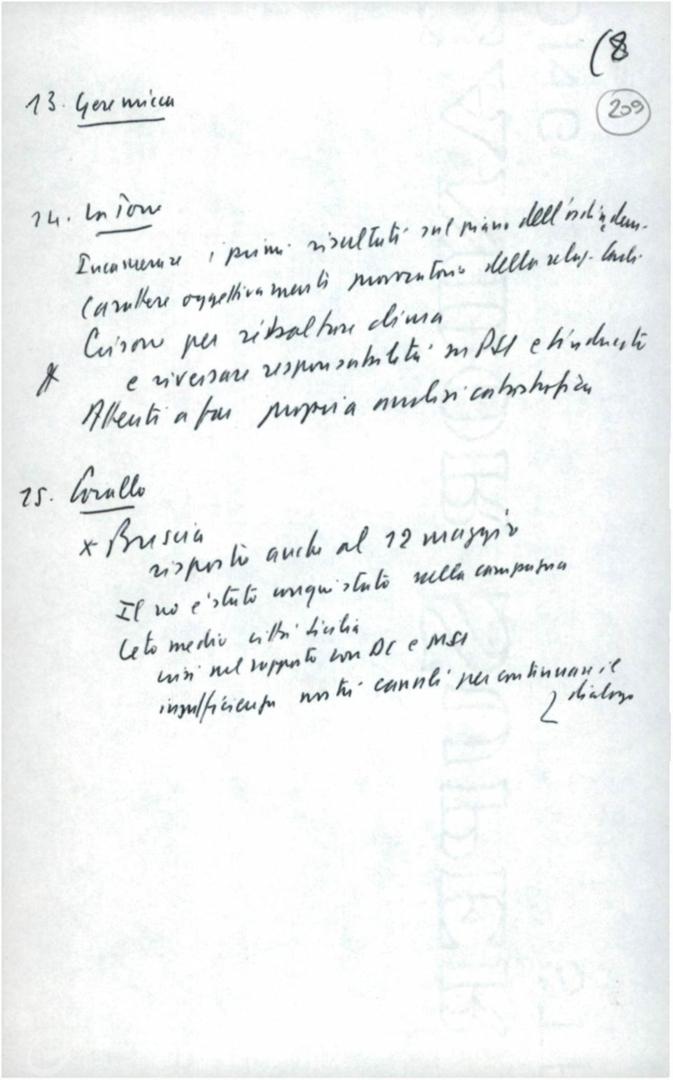 (8
209
13. Geremicca
14. La Torre
Incamerare i primi risultati sul piano dell'
Carattere oggettivamente della
Crisone per risollevare clima
e riversare responsabilità su PSI e sindacati
Attenti a far propria analisi catastrofica
15. Corallo
x Brescia
risposta anche al 12 maggio
Il no è stato conquistato nella campagna
Ceto medio città Sicilia
crisi nel rapporto con DC e MSI
insufficienza nostri canali per continuare il
dialogo